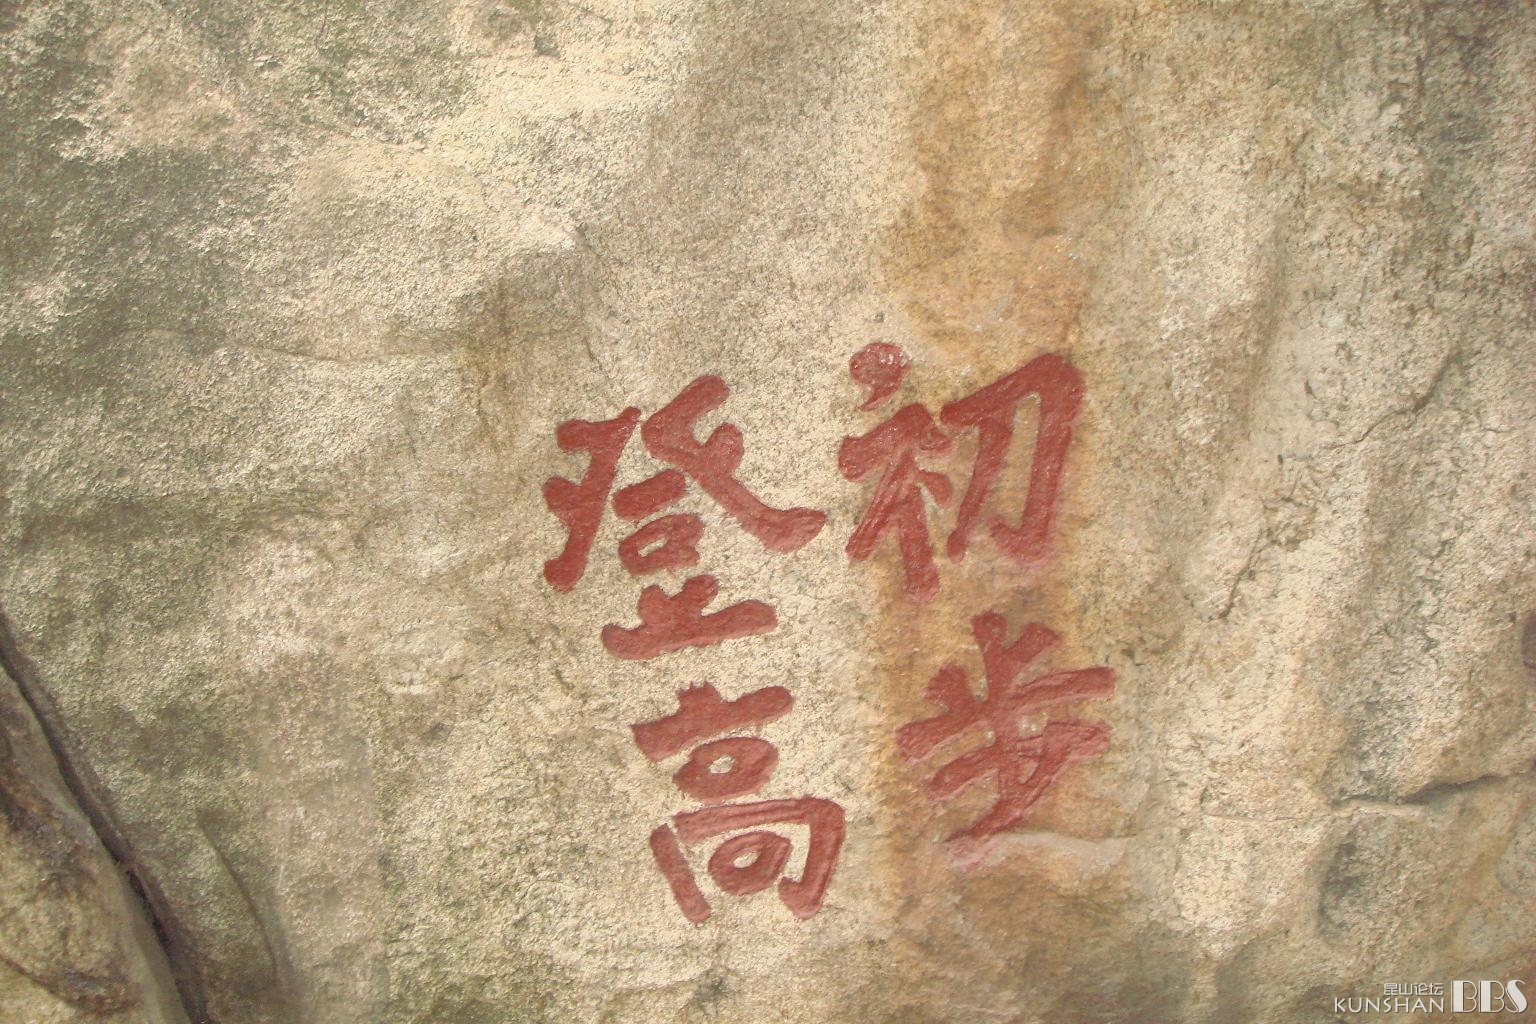 初步
登高
昆山论坛
KUNSHAN BBS